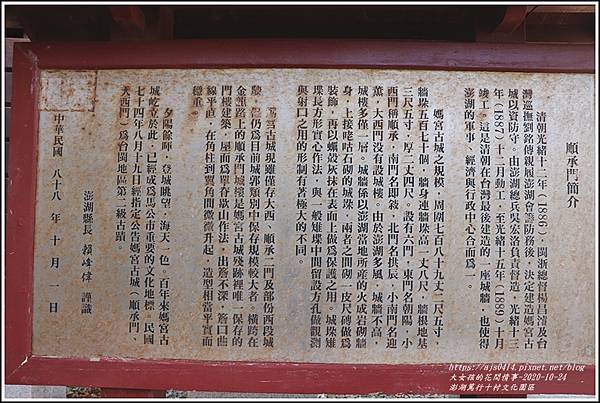 順承門簡介
清朝光緒十二年(1886)，閩浙總督楊昌濬及台
灣巡撫劉銘傳親履澎湖會籌防務後，決定建造媽宮古
城以資防守。由澎湖總兵吳宏洛負責督造，光緒十三
年(1887)十二月動工，至光緒十五年(1889)十月
竣工。這是清朝在台灣最後建造的一座城牆，也使得
澎湖的軍事、經濟與行政中心合而為一。
媽宮古城之規模，周圍七百八十九丈二尺五寸，
牆垛五百七十個，牆身連牆垛高一丈八尺，牆根地基
三尺五寸，厚二丈四尺。設有六門，東門名朝陽，小
西門稱順承，南門名即敍，北門名拱辰，小南門名迎
薰，大西門沒有設城樓。由於澎湖多風，城牆不高，
城樓多僅一層。城牆係以澎湖當地所產的火成岩砌牆
身，上接咾咕石砌的城垛，兩者之間砌一皮尺磚做為
裝飾，再以螺殼灰抹在表面上做為保護之用，城垛雉
堞長方形實心作法，與一般雉堞中間留設方孔做觀測
與射口之用的形制有著極大的不同。
宮古城現雖僅存大西、順承二門及部份西段城
，仍為目前城郭類別中保存規模較大者，橫跨在
金龍路上的順承門城樓是媽宮古城殘跡裡唯一保存的
門樓建築，屋面為單脊歇山作法，出簷不深，簷口曲
線平直，在角柱到翼角間微微升起，造型相當平實而
穩重。
夕陽餘暉，登城眺望，海天一色。百年來媽宮古
城屹立於此，已經成為馬公市重要的文化地標。民國
七十四年八月十九日經指定公告媽宮古城（順承門、
大西門）為台閩地區第二級古蹟。
澎湖縣長 賴峰偉 謹識
中華民國 八十八 年 十 月 一 日
https://ajs0414.pixnet.net/blog
大女孩的花間情事-2020-10-24
澎湖篤行十村文化園區